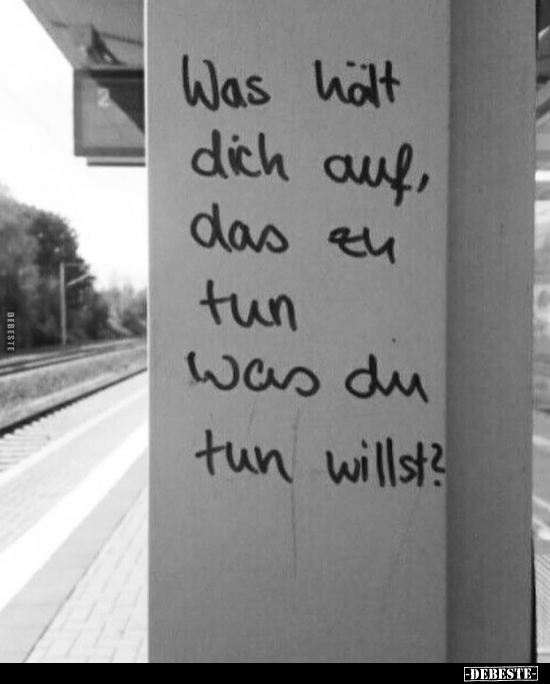 2
Was hält
dich auf,
das zu
tun
was du
tun willst?
DEBESTE
-DEBESTE-